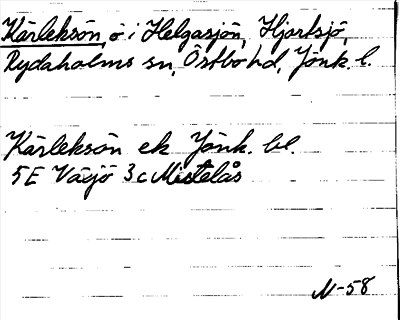 Kärleksön, ö i Helgasjön, Hjortsjö,
Rydaholms sn, Östbo hd, Jönk. l.
Kärleksön ek Jönk. bl.
5E Växjö 3c Mistelås
N-58